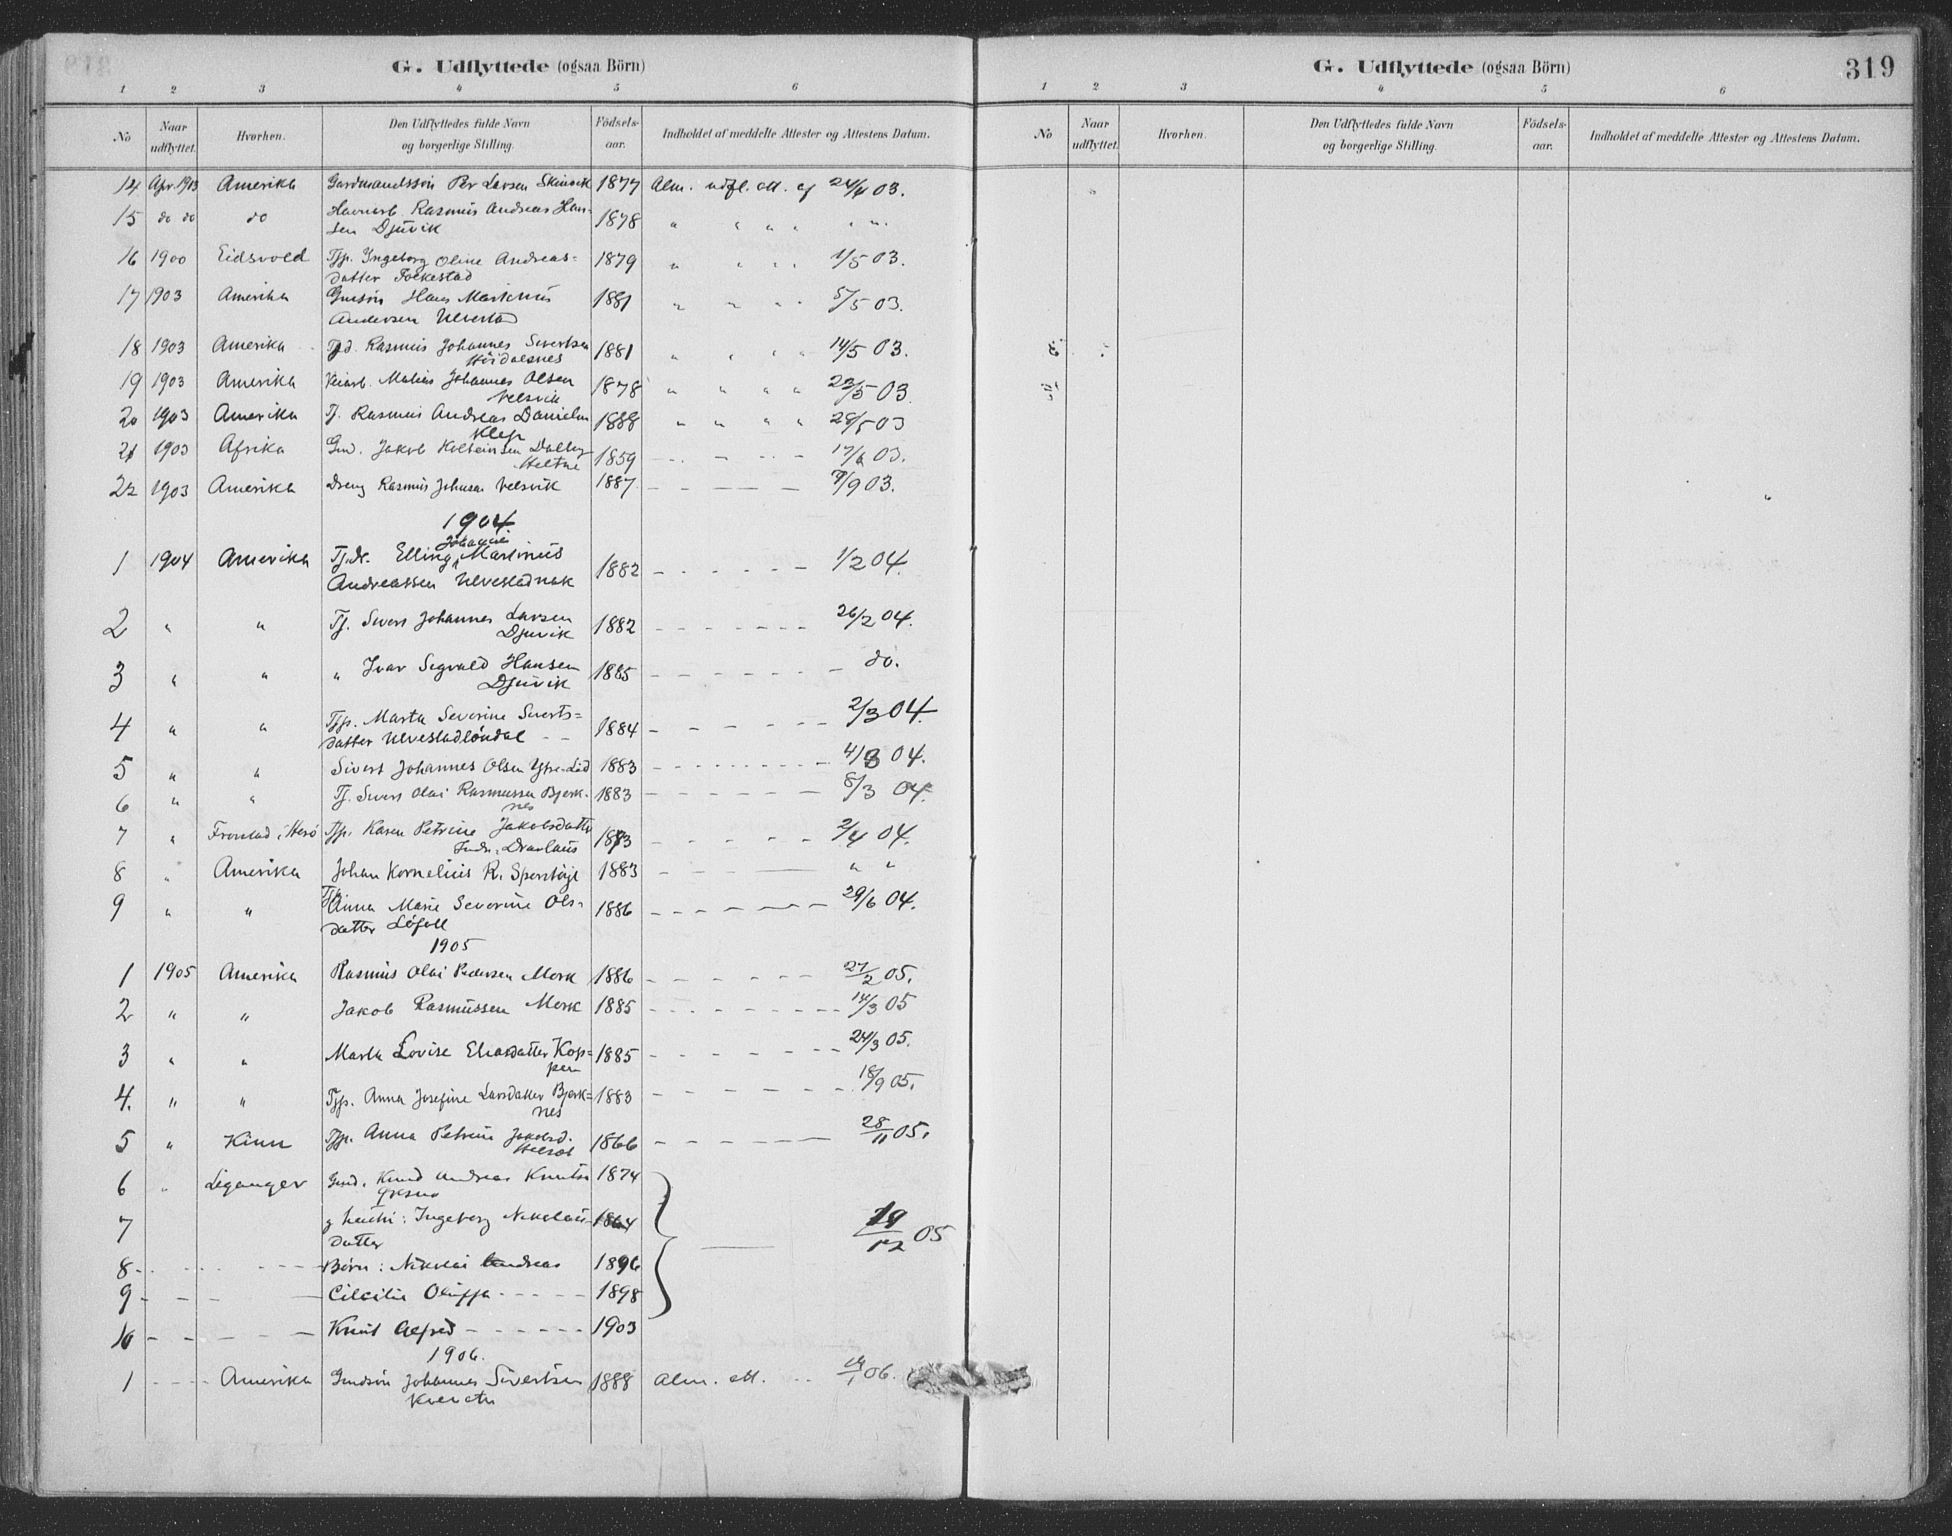 G. Udflyttede (ogsaa Börn)
1 2 3 4 5 6
No
Naar udflyttet.
Hvorhen.
Den Udflyttedes fulde Navn og borgerlige Stilling.
Födsels-aar.
Indholdet af meddelte Attester og Attestens Datum.
14 Apr. 1903 Amerika Gardmandssön Per Larsen 1877 Alm. udfl. att. af 24/4 03.
15 do do do Rasmus Andreas Han-
sen Djuvik 1878 " " " " " "
16 1900 Eidsvold Tjp. Ingeborg Oline Andreas-
datter Folkestad 1879 " " " " 1/5 03.
17 1903 Amerika Gmsön Hans Martinus
Andersen Ulvestad 1881 " " " " 5/5 03.
18 1903 Amerika Rasmus Johannes Sivertsen
Höidalsnes 1881 " " " " 14/5 03.
19 1903 Amerika Matias Johannes Olsen
Velsvik 1878 " " " " 23/5 03.
20 1903 Amerika Tj. Rasmus Andreas Danielsen
Klep 1888 " " " " 28/5 03
21 1903 Afrika Gm. Jakob Dalby
1859 17/6 03.
22 1903 Amerika Dreng Rasmus Johnsen Velsvik 1887 — — — — 9/9 03.
1904.
Johannes
1 1904 Amerika Tjdr. Elling Martinus
Andreassen Ulvestadbak 1882 – – – – – – 1/2 04.
2 " " Tj. Sivert Johannes Larsen
Djuvik 1882 – – – – – – 26/2 04.
3 " " " Ivar Sigvald Hansen
Djuvik 1885 – – – – – – do.
4 " " Tjp. Marta Severine Siverts-
datter Ulvestadlöndal – – 1884 – – – – – 2/3 04.
5 " " Sivert Johannes Olsen Ytre-Lid 1883 – – – – – – 4/3 04.
6 " " Tj. Sivert Olai Rasmussen Bjerk-
nes 1883 – – – – – – 8/3 04.
7 " i Herö Tjp. Karen Petrine Jakobsdatter
1873 – – – – – 2/4 04.
8 " Amerika Johan Kornelius R. 1883 – – – — " "
9 " " Tjp. Anna Marie Severine Ols-
datter Löfoll 1886 – – – – – – 29/6 04.
1905
1 1905 Amerika Rasmus Olai Pedersen Mork 1886 – – – – – – 27/2 05.
2 " " Jakob Rasmussen Mork 1885 – – – – – – 14/3 05
3 " " Marta Lovise Eliasdatter Kop-
pen 1885 – – – – – – 24/3 05.
4. " " Tjp. Anna Josefine Larsdatter Bjerk-
nes 1883 – – – – – – 18/9 05.
5 " Kinn Tjp. Anna Petrine Jakobsd.
1866 – – – – — 28/11 05.
6 " Liganger Gmd. Knud Andreas Knutsen
1874
7 g hustru: Ingeborg Nikolai-
datter 1864 — 19/12 05
8 - - - - - - Börn: Nikolai Andreas 1896
9 - - - — Cicilie Oluffa - - - - - 1898
10 - - - - — Knut Alfred - - - - - - 1903
1906.
1 - - - - Amerika Gmdsön Johannes Sivertsen
1888 Alm. att. 06.
G. Udflyttede (ogsaa Börn)
319
1 2 3 4 5 6
No
Naar udflyttet.
Hvorhen.
Den Udflyttedes fulde Navn og borgerlige Stilling.
Födsels-aar.
Indholdet af meddelte Attester og Attestens Datum.